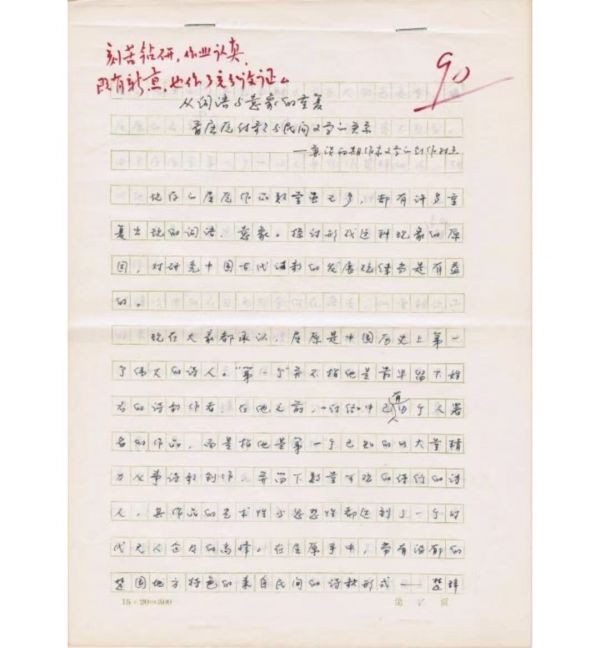 刻苦钻研，作业认真，
既有新意，也作了充分论证。
90
从词语与意象的重复
看屈原诗歌与民间文学的关系
——兼谈初期作家文学的创作特点
现存的屈原作品数量虽不多，却有许多重
复出现的词语、意象。探讨形成这种现象的原
因，对研究中国古代诗歌的发展规律当是有益
的。
现在大家都承认，屈原是中国历史上第一
个伟大的诗人。“第一个”并不指他是最早留下姓
名的诗歌作者，在他之前，《诗经》中已有个人署
名的作品，而是指他是第一个已知的以大量精
力从事诗歌创作，并留下数量可观的传作的诗
人，其作品的艺术性与思想性都达到了一个时
代无人企及的高峰。在屈原手中，带有浓郁的
楚国地方特色的来自民间的诗歌形式——楚辞
15×20=300
第 1 页